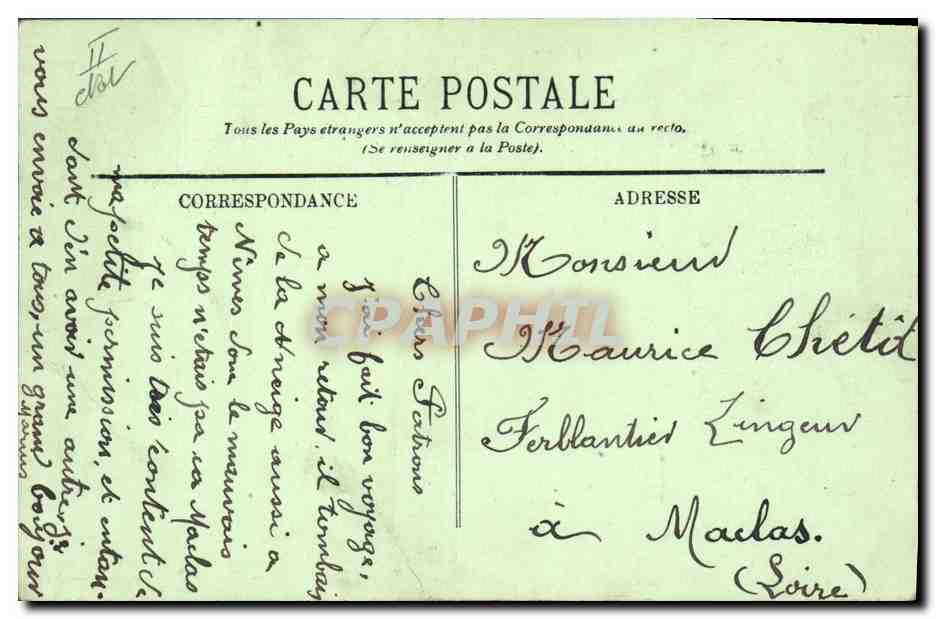 CARTE POSTALE
Tous les Pays étrangers n'acceptent pas la Correspondance au recto.
(Se renseigner à la Poste).
CORRESPONDANCE
Chers Patrons
J'ai fait bon voyage,
a mon retour il tombait
de la neige aussi a
Nîmes donc le mauvais
temps n'étais pas ca Maclas
Je suis très content de
ma petite permission, et entan-
dant d'en avoir une autre, je
vous envoie a tous, un grand bonjour
Marius
ADRESSE
Monsieur
Maurice Chétit
Ferblantier Zingeur
à Maclas.
(Loire)
CPAPHIL